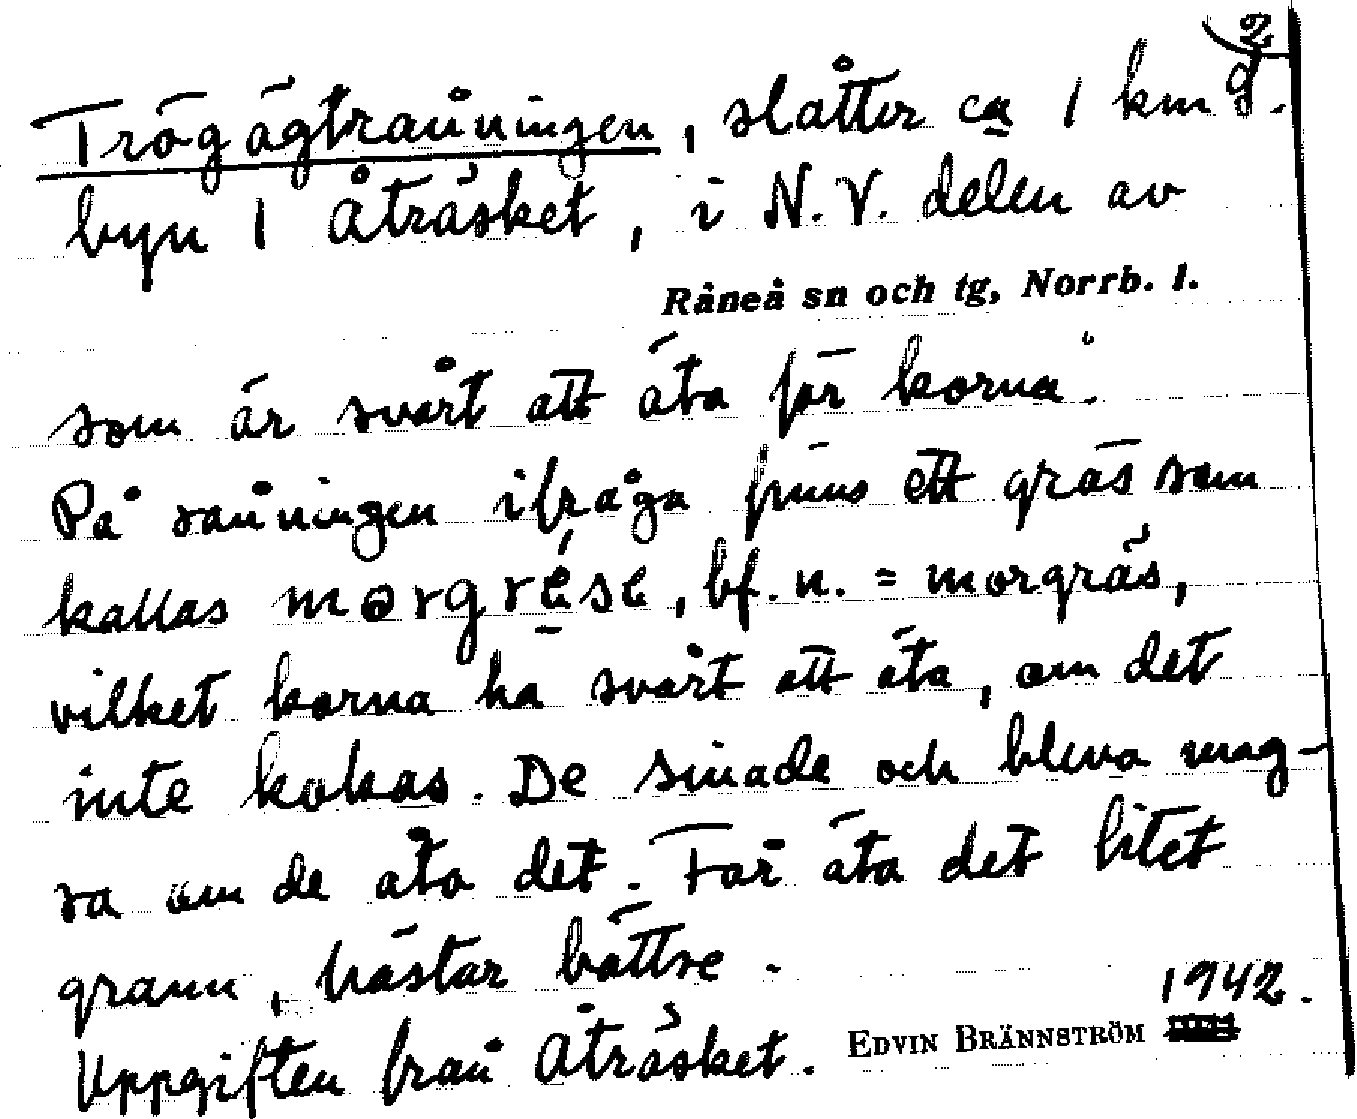 2
Trögägtraűningen, slåtter ca 1 km g.
byn 1 Åträsket, i N.V. delen av
Råneå sn och tg, Norrb. l.
som är svårt att äta för korna".
På raűningen ifråga finns ett gräs som
kallas morgrése, bf. n. = morgräs,
vilket korna ha svårt att äta, om det
inte kokas. De sinade och bleva mag-
ra om de åto det. Får äta det litet
grann, hästar bättre.
Uppgiften från Åträsket. EDVIN BRÄNNSTRÖM 1942.